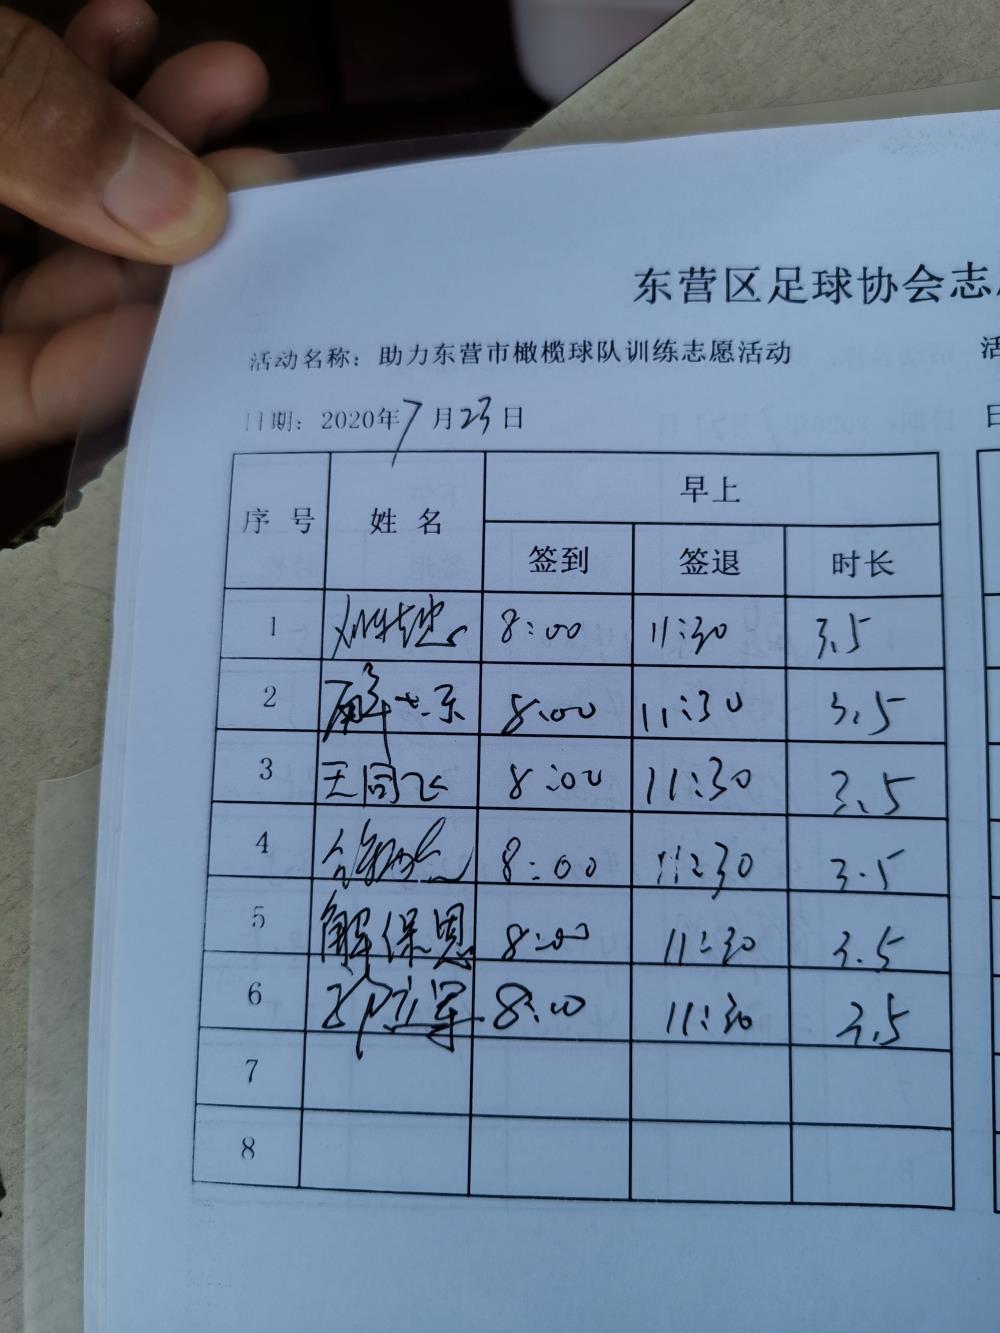 东营区足球协会志
活动名称：助力东营市橄榄球队训练志愿活动 活
日期：2020年7月23日 日
序 号 姓 名 早上
签到 签退 时长
1 8:00 11:30 3.5
2 8:00 11:30 3.5
3 王同飞 8:00 11:30 3.5
4 8:00 11:30 3.5
5 解保恩 8:00 11:30 3.5
6 8:00 11:30 3.5
7
8